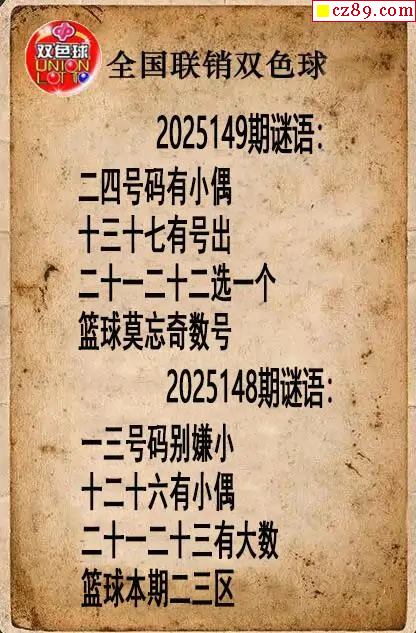 cz89.com
双色球
UNION
LOTTO
全国联销双色球
2025149期谜语:
二四号码有小偶
十三十七有号出
二十一二十二选一个
篮球莫忘奇数号
2025148期谜语:
一三号码别嫌小
十二十六有小偶
二十一二十三有大数
篮球本期二三区